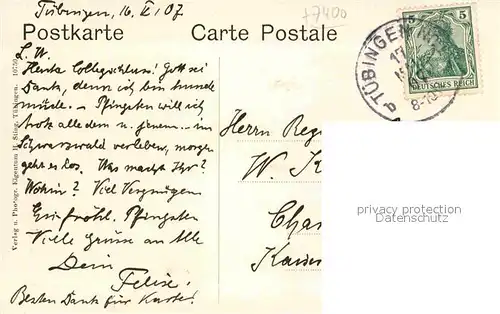 Tübingen, 16. V. 07.
+7400
Postkarte
Carte Postale
L. W.
Heute Collegschluss! Gott sei
Dank, denn ich bin hunde
müde. – Pfingsten will ich
trotz alledem u. jenem im
Schwarzwald verleben, morgen
geht es los. Was macht Ihr?
Wohin? Viel Vergnügen
Ein fröhl. Pfingsten
Viele Grüsse an Alle
Dein
Felix!
Besten Dank für Karte!
Verlag u. Photogr. Eigentum H. Sting, Tübingen.
TÜBINGEN
8-9
b
5 5
DEUTSCHES REICH
Herrn Reg
W. K
Cha
Kaise
privacy protection
Datenschutz